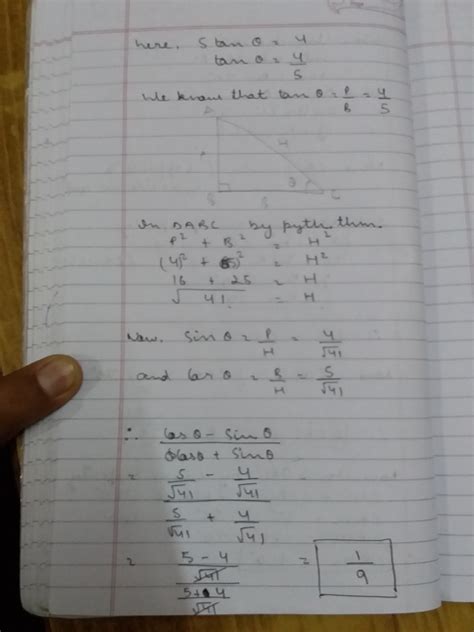 here, 5 tan θ = 4
tan θ = 4/5
We know that tan θ = P/B = 4/5
A
H
θ
B
C
In ΔABC by pyth thm.
P² + B² = H²
(4)² + (5)² = H²
16 + 25 = H
√41 = H
Now, Sin θ = P/H = 4/√41
and Cos θ = B/H = 5/√41
∴ Cos θ - Sin θ / Cos θ + Sin θ
= 5/√41 - 4/√41 / 5/√41 + 4/√41
= 5 - 4/√41 / 5 + 4/√41 = 1/9